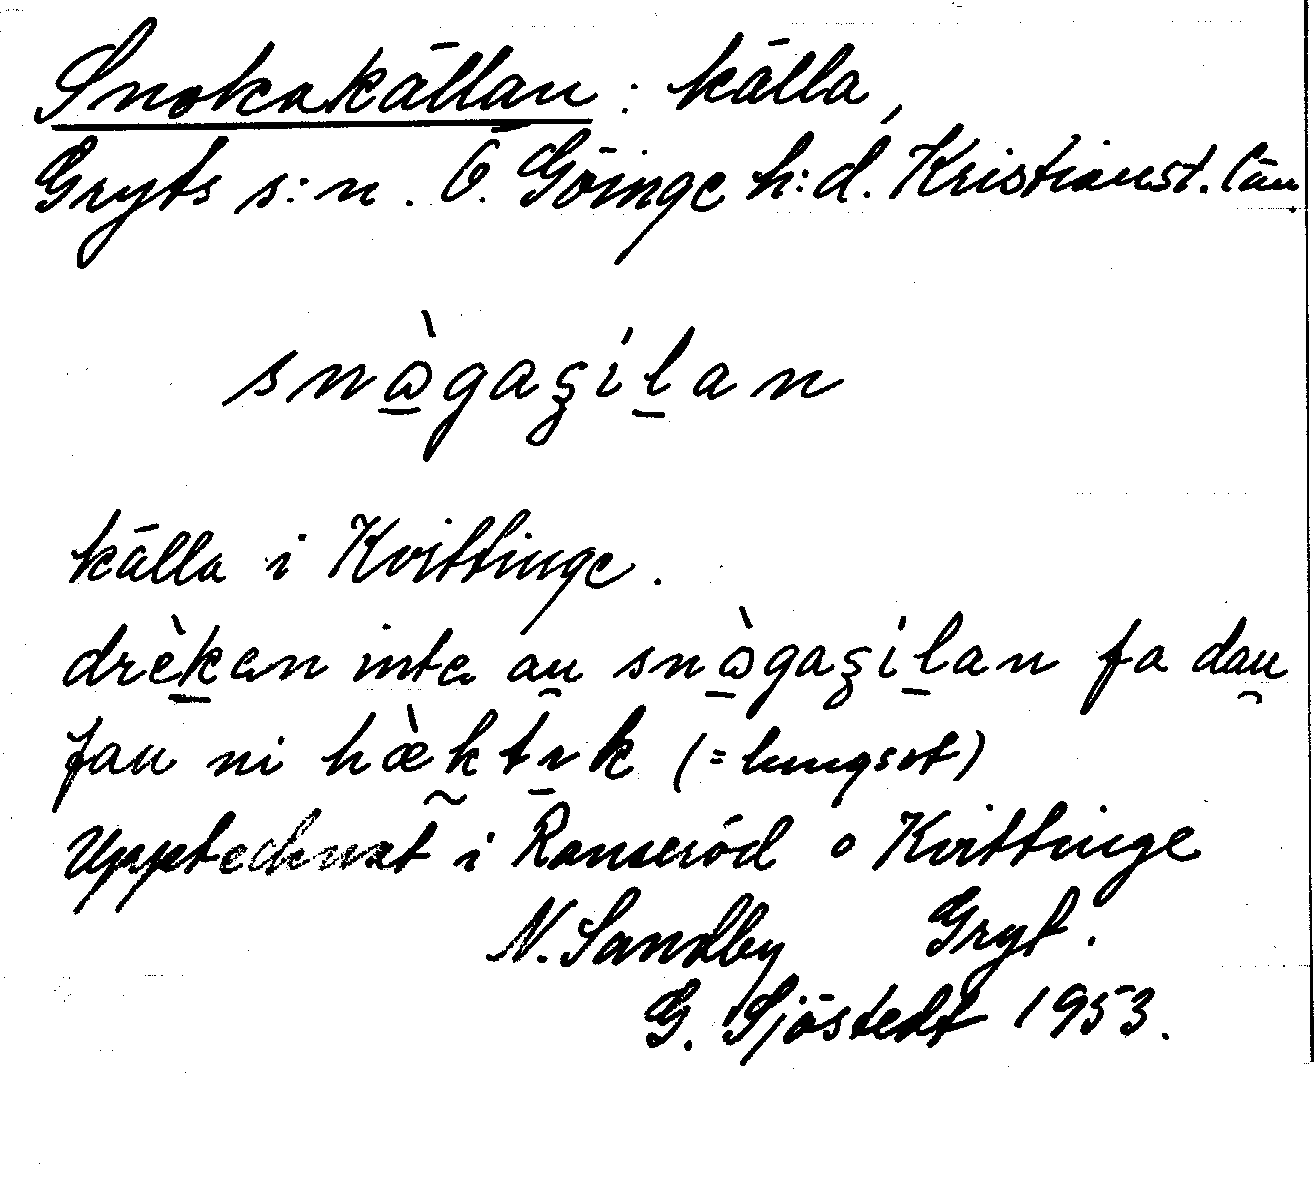 Snokakällan : källa,
Gryts s:n. Ö. Göinge h:d. Kristianst. län.
snàgaʒílan
källa i Kvittinge.
drèken inte au snàgaʒílan fa dau
fau ni hæ̀ktɩk (= lungsot)
Upptecknat i Ranseröd o Kvittinge
N. Sandby Gryt.
G. Sjöstedt 1953.